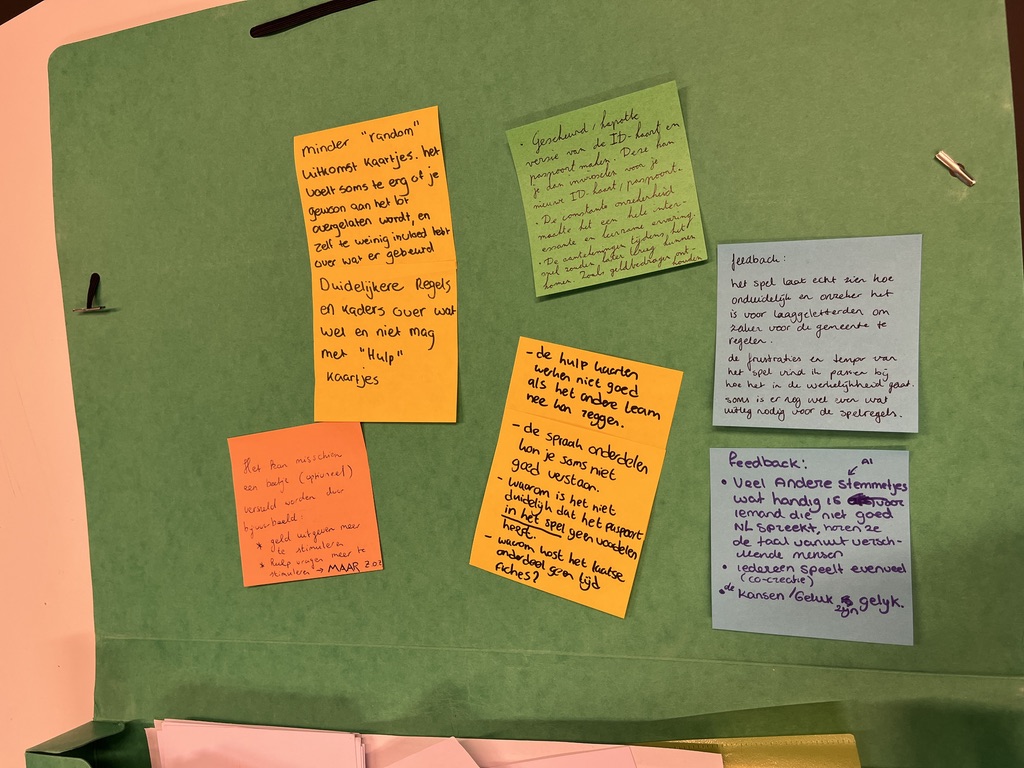 minder "random"
uitkomst kaartjes. het
voelt soms te erg of je
gewoon aan het lot
overgelaten wordt, en
zelf te weinig invloed hebt
over wat er gebeurd
Duidelijkere Regels
en kaders over wat
wel en niet mag
met "Hulp"
kaartjes
• Gescheurd / kapotte
versie van de ID-kaart en
paspoort maken. Deze kan
je dan inwisselen voor je
nieuwe ID-kaart / paspoort.
• De constante onzekerheid
maakte het een hele inter-
essante en leerzame ervaring.
• De aantekeningen tijdens het
spel zouden later terug kunnen
komen. Zoals geldbedragen ont-
houden
feedback:
het spel laat echt zien hoe
onduidelijk en onzeker het
is voor laaggeletterden om
zaken voor de gemeente te
regelen.
de frustraties en tempo van
het spel vind ik passen bij
hoe het in de werkelijkheid gaat.
soms is er nog wel even wat
uitleg nodig voor de spelregels.
- de hulp kaarten
werken niet goed
als het andere team
nee kan zeggen.
- de spraak onderdelen
kon je soms niet
goed verstaan.
- waarom is het niet
duidelijk dat het paspoort
in het spel geen voordelen
heeft.
- waarom kost het laatste
onderdeel geen tijd
fiches?
Het kan misschien
een beetje (optioneel)
versneld worden door
bijvoorbeeld:
* geld uitgeven meer
te stimuleren
* hulp vragen meer te
stimuleren → MAAR z.o.z
Feedback:
AI
• Veel Andere stemmetjes
wat handig is voor
iemand die niet goed
NL spreekt, horen ze
de taal vanuit versch-
illende mensen
• iedereen speelt evenveel
(co-creatie)
• de Kansen/Geluk zijn gelijk.